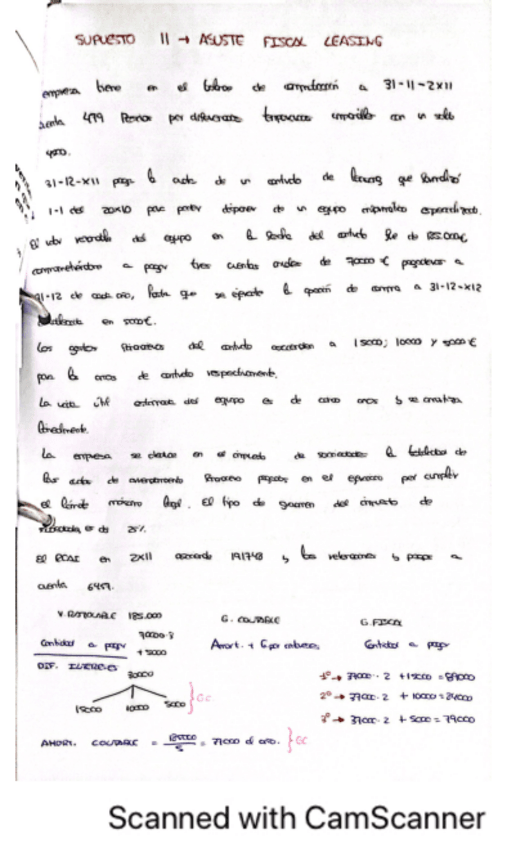 SUPUESTO 11 → AJUSTE FISCAL LEASING
empresa tiene en el balance de comprobación a 31-11-2x11
cuenta 479 Pasivos por diferencias temporarias imponibles con un saldo
31-12-x11 paga la cuota de un contrato de leasing que formalizó
1-1 del 20x10 para poder disponer de un equipo informático especializado.
El valor razonable del equipo en la fecha del contrato fue de 185.000€
comprometiéndose a pagar tres cuotas anuales de 70000 € pagaderas a
31-12 de cada año, hasta que se ejercite la opción de compra a 31-12-x12
en 5000€.
Los gastos financieros del contrato ascienden a 15000; 10000 y 5000 €
para los años de contrato respectivamente.
La vida útil estimada del equipo es de cinco años y se amortiza
linealmente.
La empresa se deduce en el impuesto de sociedades la totalidad de
las cuotas de arrendamiento financiero pagadas en el ejercicio por cumplir
el límite máximo legal. El tipo de gravamen del impuesto de
sociedades es de 25%.
El RCAI en 2x11 asciende 191748 y las retenciones y pagos a
cuenta 6457.
V. RAZONABLE 185.000
G. CONTABLE
G. FISCAL
Cantidad a pagar 70000·3 + 5000
Amort. + G. por intereses
Cantidad a pagar
DIF. INTERESES
30000
15000 10000 5000 } GC
1º → 37000·2 + 15000 = 89000
2º → 37000·2 + 10000 = 84000
3º → 37000·2 + 5000 = 79000
AMORT. CONTABLE = 185000/5 = 37000 al año. } GC
Scanned with CamScanner